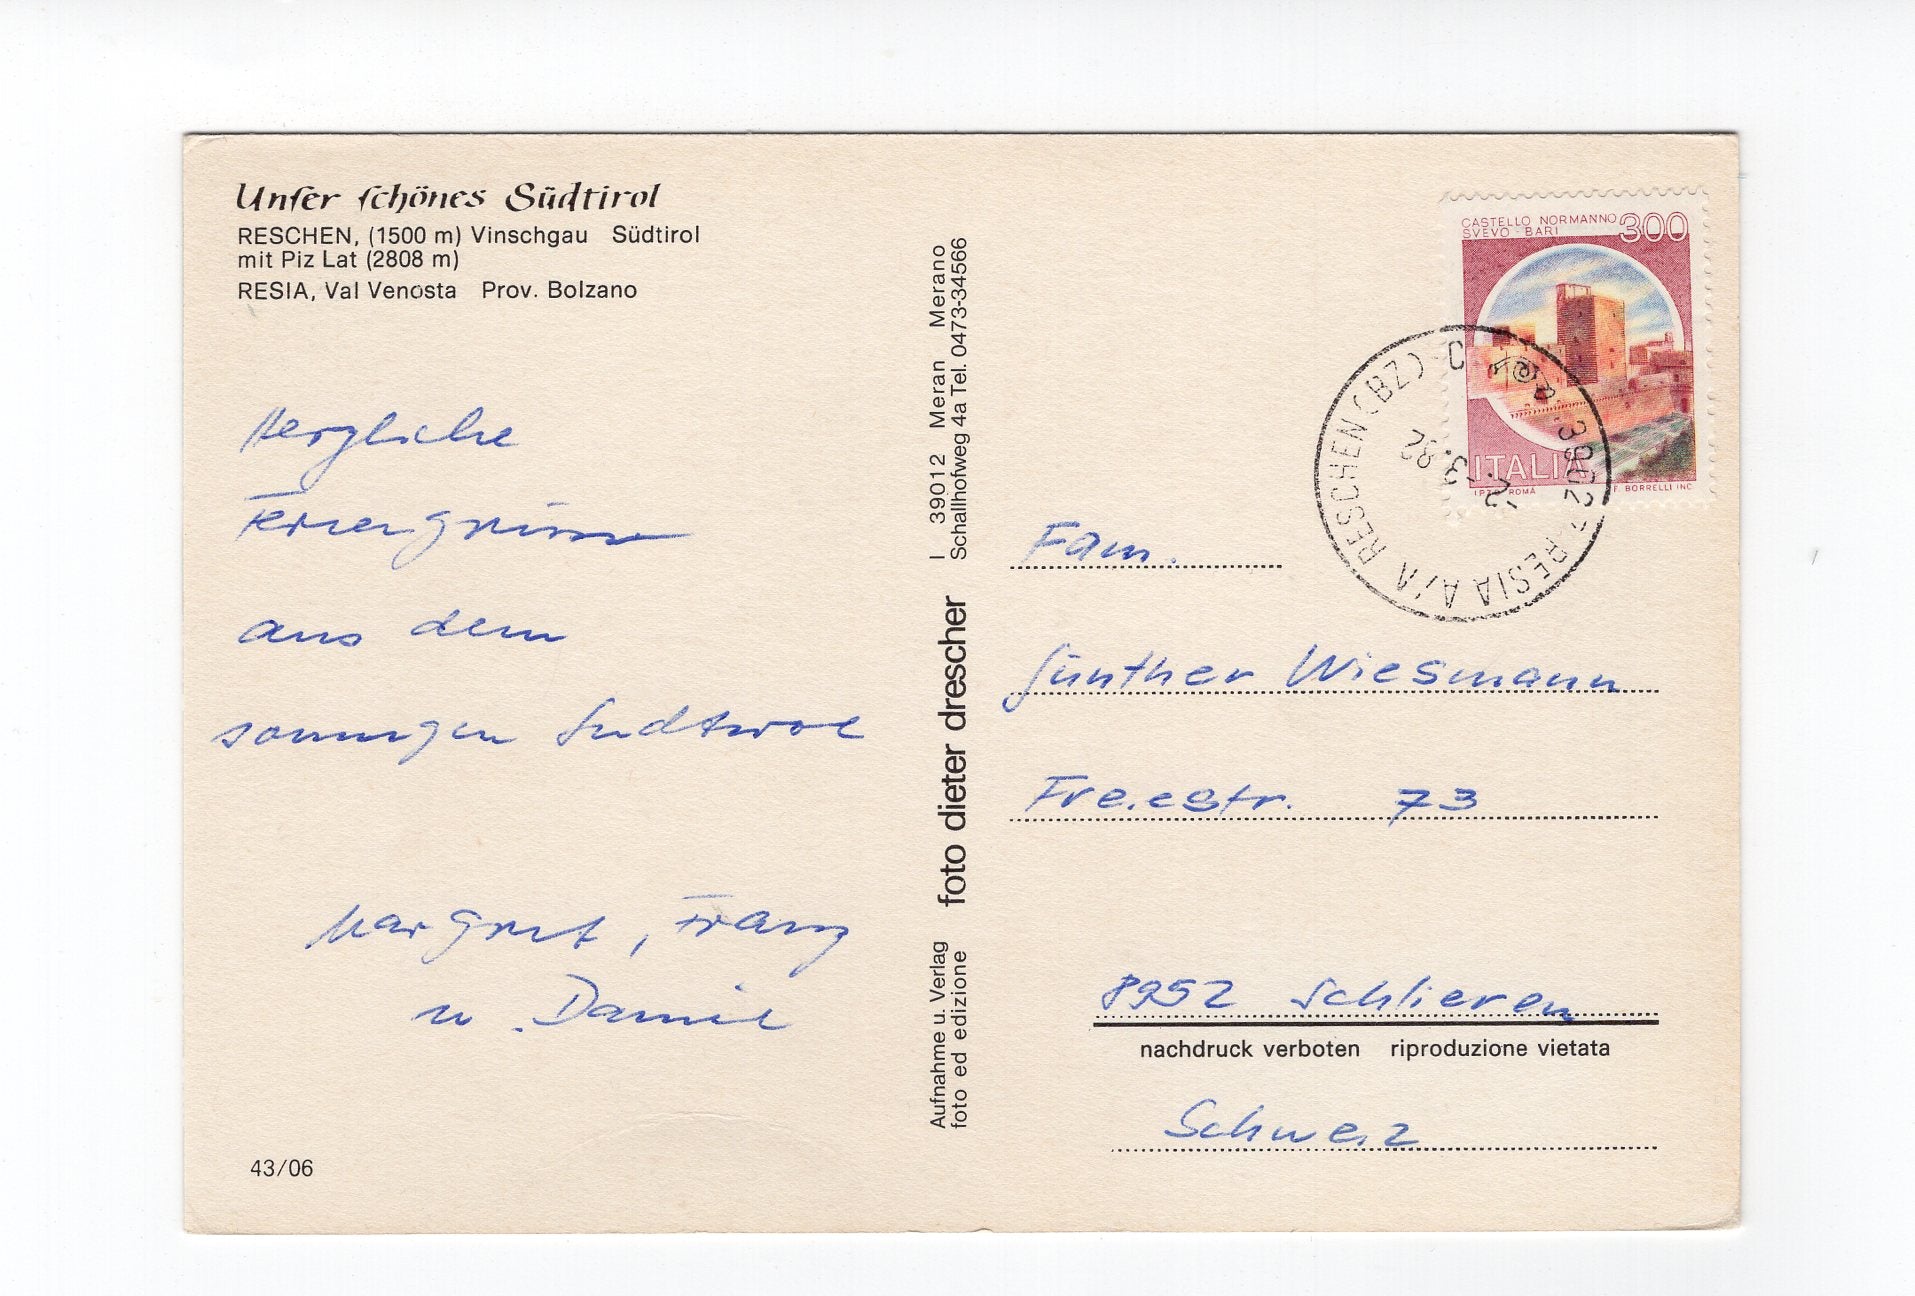 Unser schönes Südtirol
RESCHEN, (1500 m) Vinschgau Südtirol
mit Piz Lat (2808 m)
RESIA, Val Venosta Prov. Bolzano
Herzliche
Feriengrüsse
aus dem
sonnigen Südtirol
Margrit, Franz
u. Daniel
43/06
Aufnahme u. Verlag
foto ed edizione
foto dieter drescher
I 39012 Meran Merano
Schallhofweg 4a Tel. 0473-34566
CASTELLO NORMANNO
SVEVO - BARI
300
ITALIA
I.P.Z.S. ROMA
F. BORRELLI INC.
RESIA A/A RESCHEN (BZ)
2.-3.82
Fam.
Günther Wiesmann
Freiestr. 73
8952 Schlieren
nachdruck verboten riproduzione vietata
Schweiz